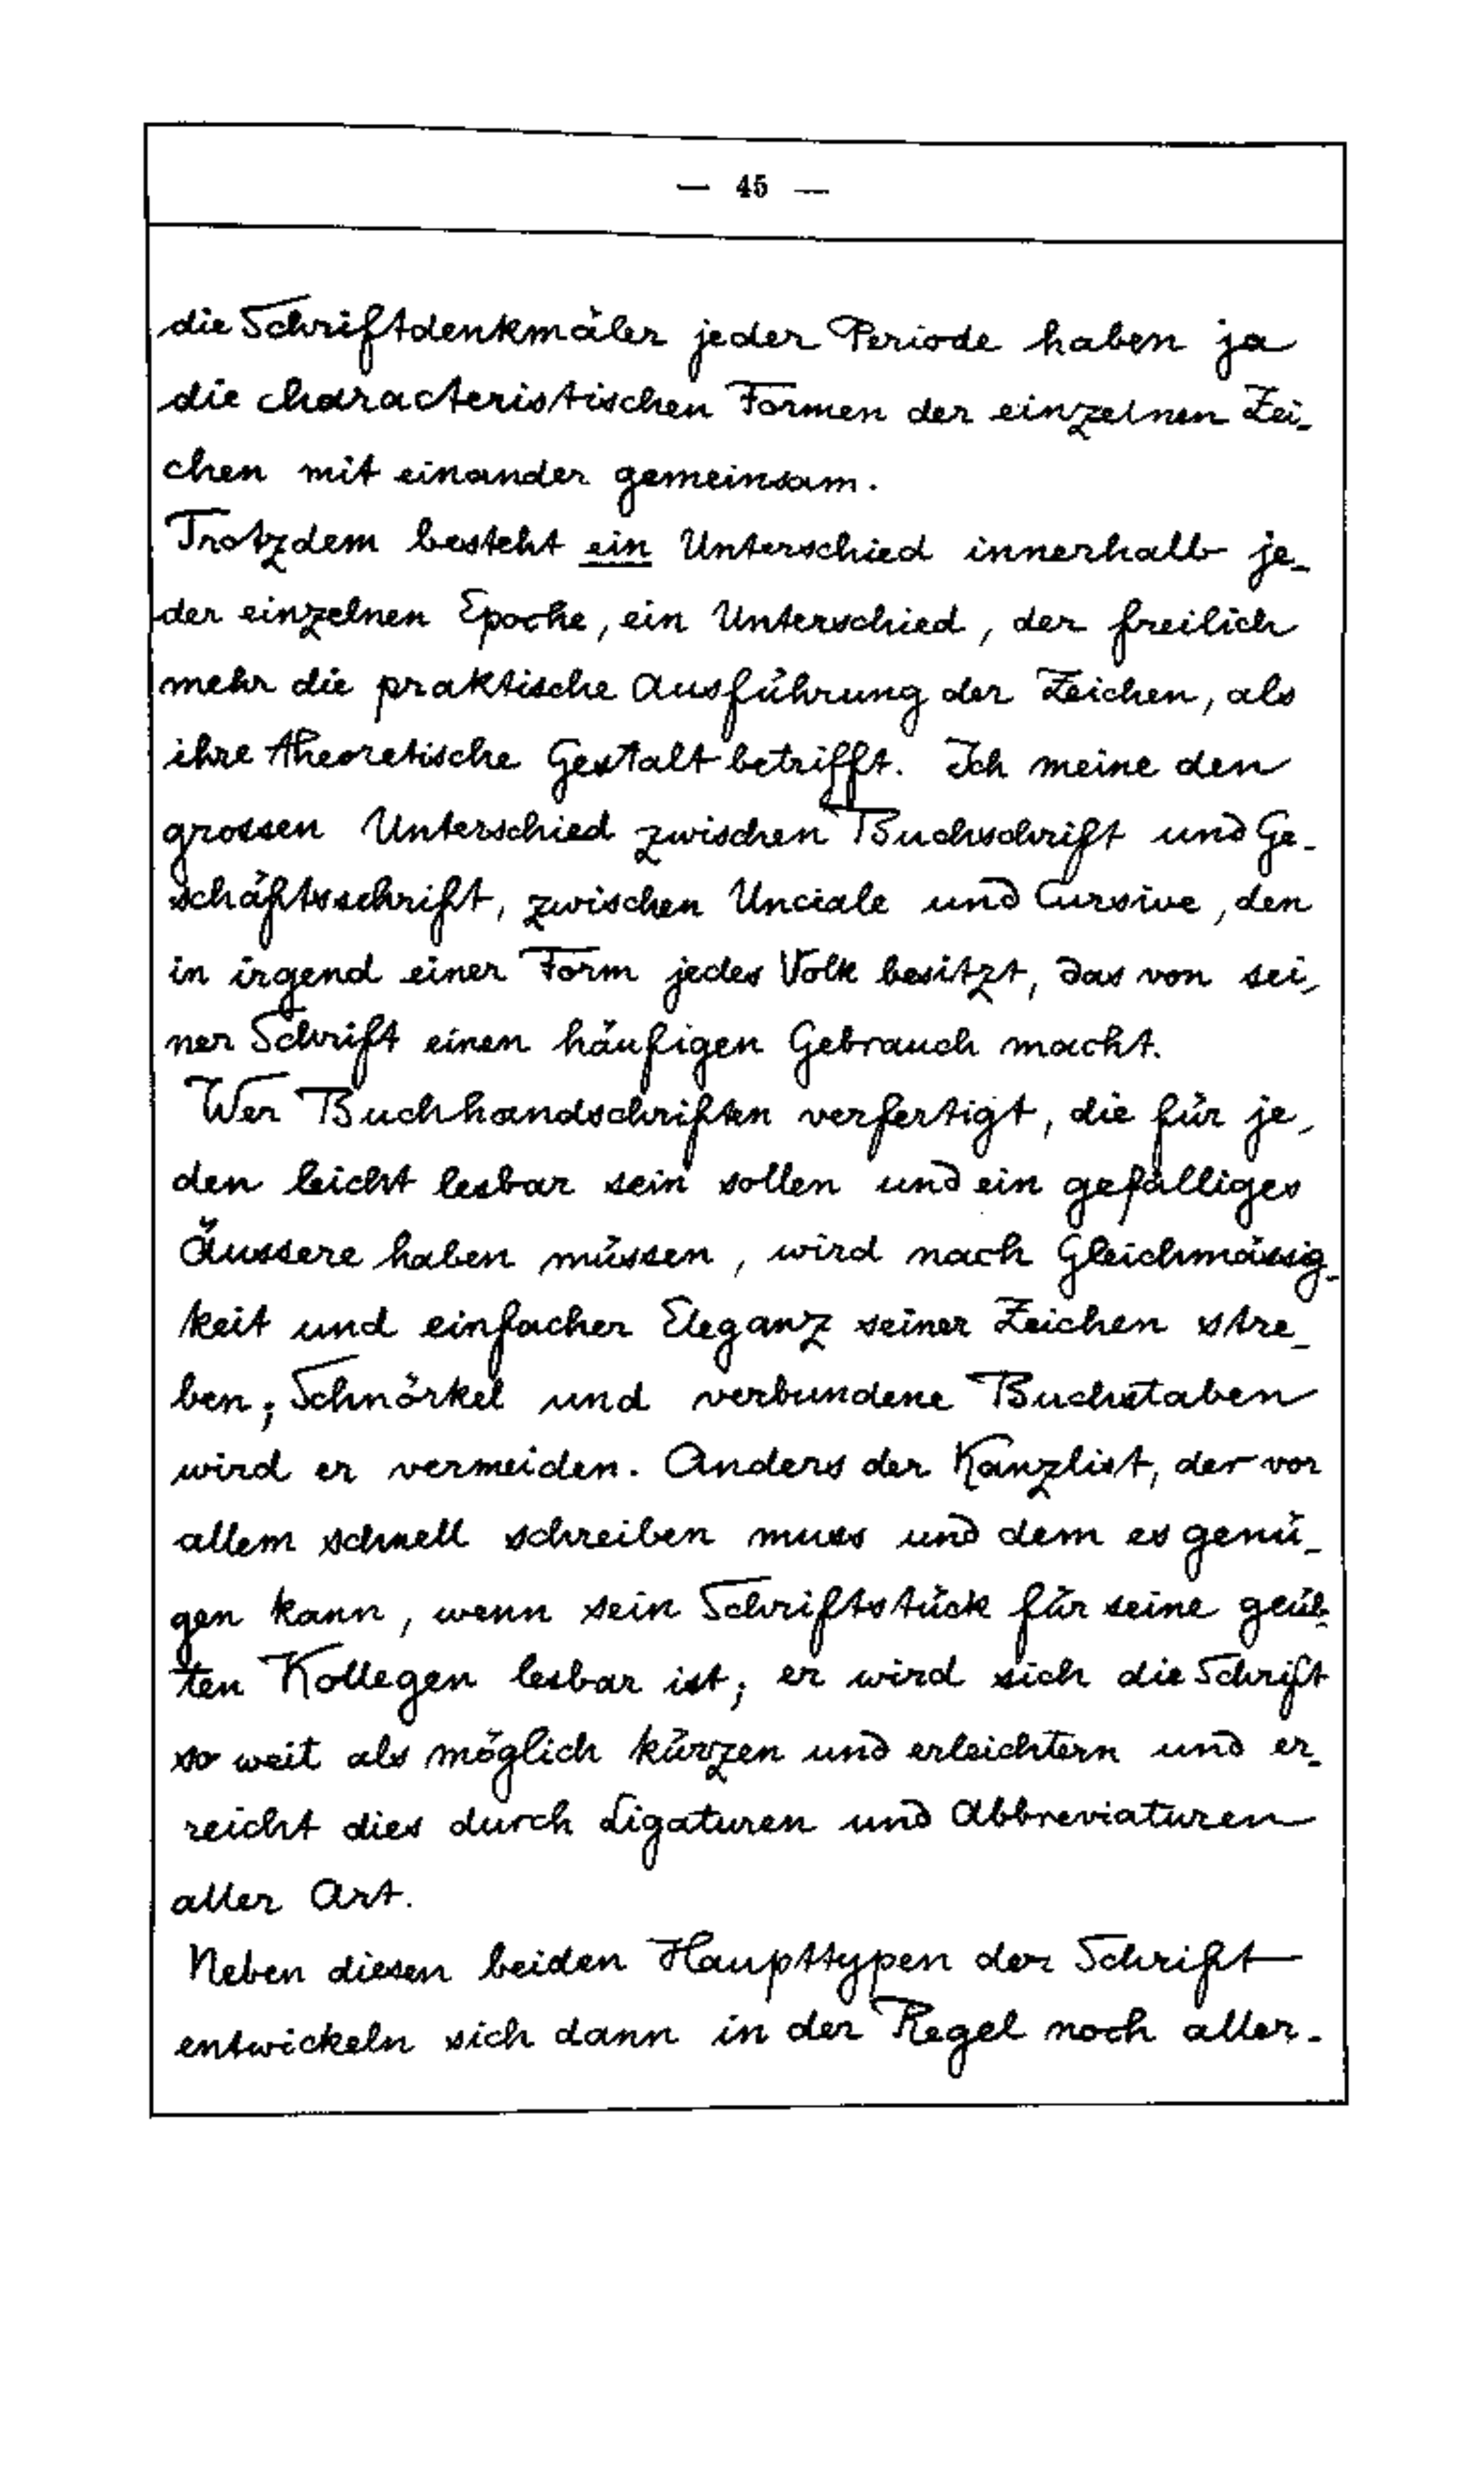 — 45 —
die Schriftdenkmäler jeder Periode haben ja
die characteristischen Formen der einzelnen Zei-
chen mit einander gemeinsam.
Trotzdem besteht ein Unterschied innerhalb je-
der einzelnen Epoche, ein Unterschied, der freilich
mehr die praktische Ausführung der Zeichen, als
ihre theoretische Gestalt betrifft. Ich meine den
grossen Unterschied zwischen Buchschrift und Ge-
schäftsschrift, zwischen Unciale und Cursive, den
in irgend einer Form jedes Volk besitzt, das von sei-
ner Schrift einen häufigen Gebrauch macht.
Wer Buchhandschriften verfertigt, die für je-
den leicht lesbar sein sollen und ein gefälliges
Äussere haben müssen, wird nach Gleichmässig-
keit und einfacher Eleganz seiner Zeichen stre-
ben; Schnörkel und verbundene Buchstaben
wird er vermeiden. Anders der Kanzlist, der vor
allem schnell schreiben muss und dem es genü-
gen kann, wenn sein Schriftstück für seine geüb-
ten Kollegen lesbar ist; er wird sich die Schrift
so weit als möglich kürzen und erleichtern und er-
reicht dies durch Ligaturen und Abbreviaturen
aller Art.
Neben diesen beiden Haupttypen der Schrift
entwickeln sich dann in der Regel noch aller-